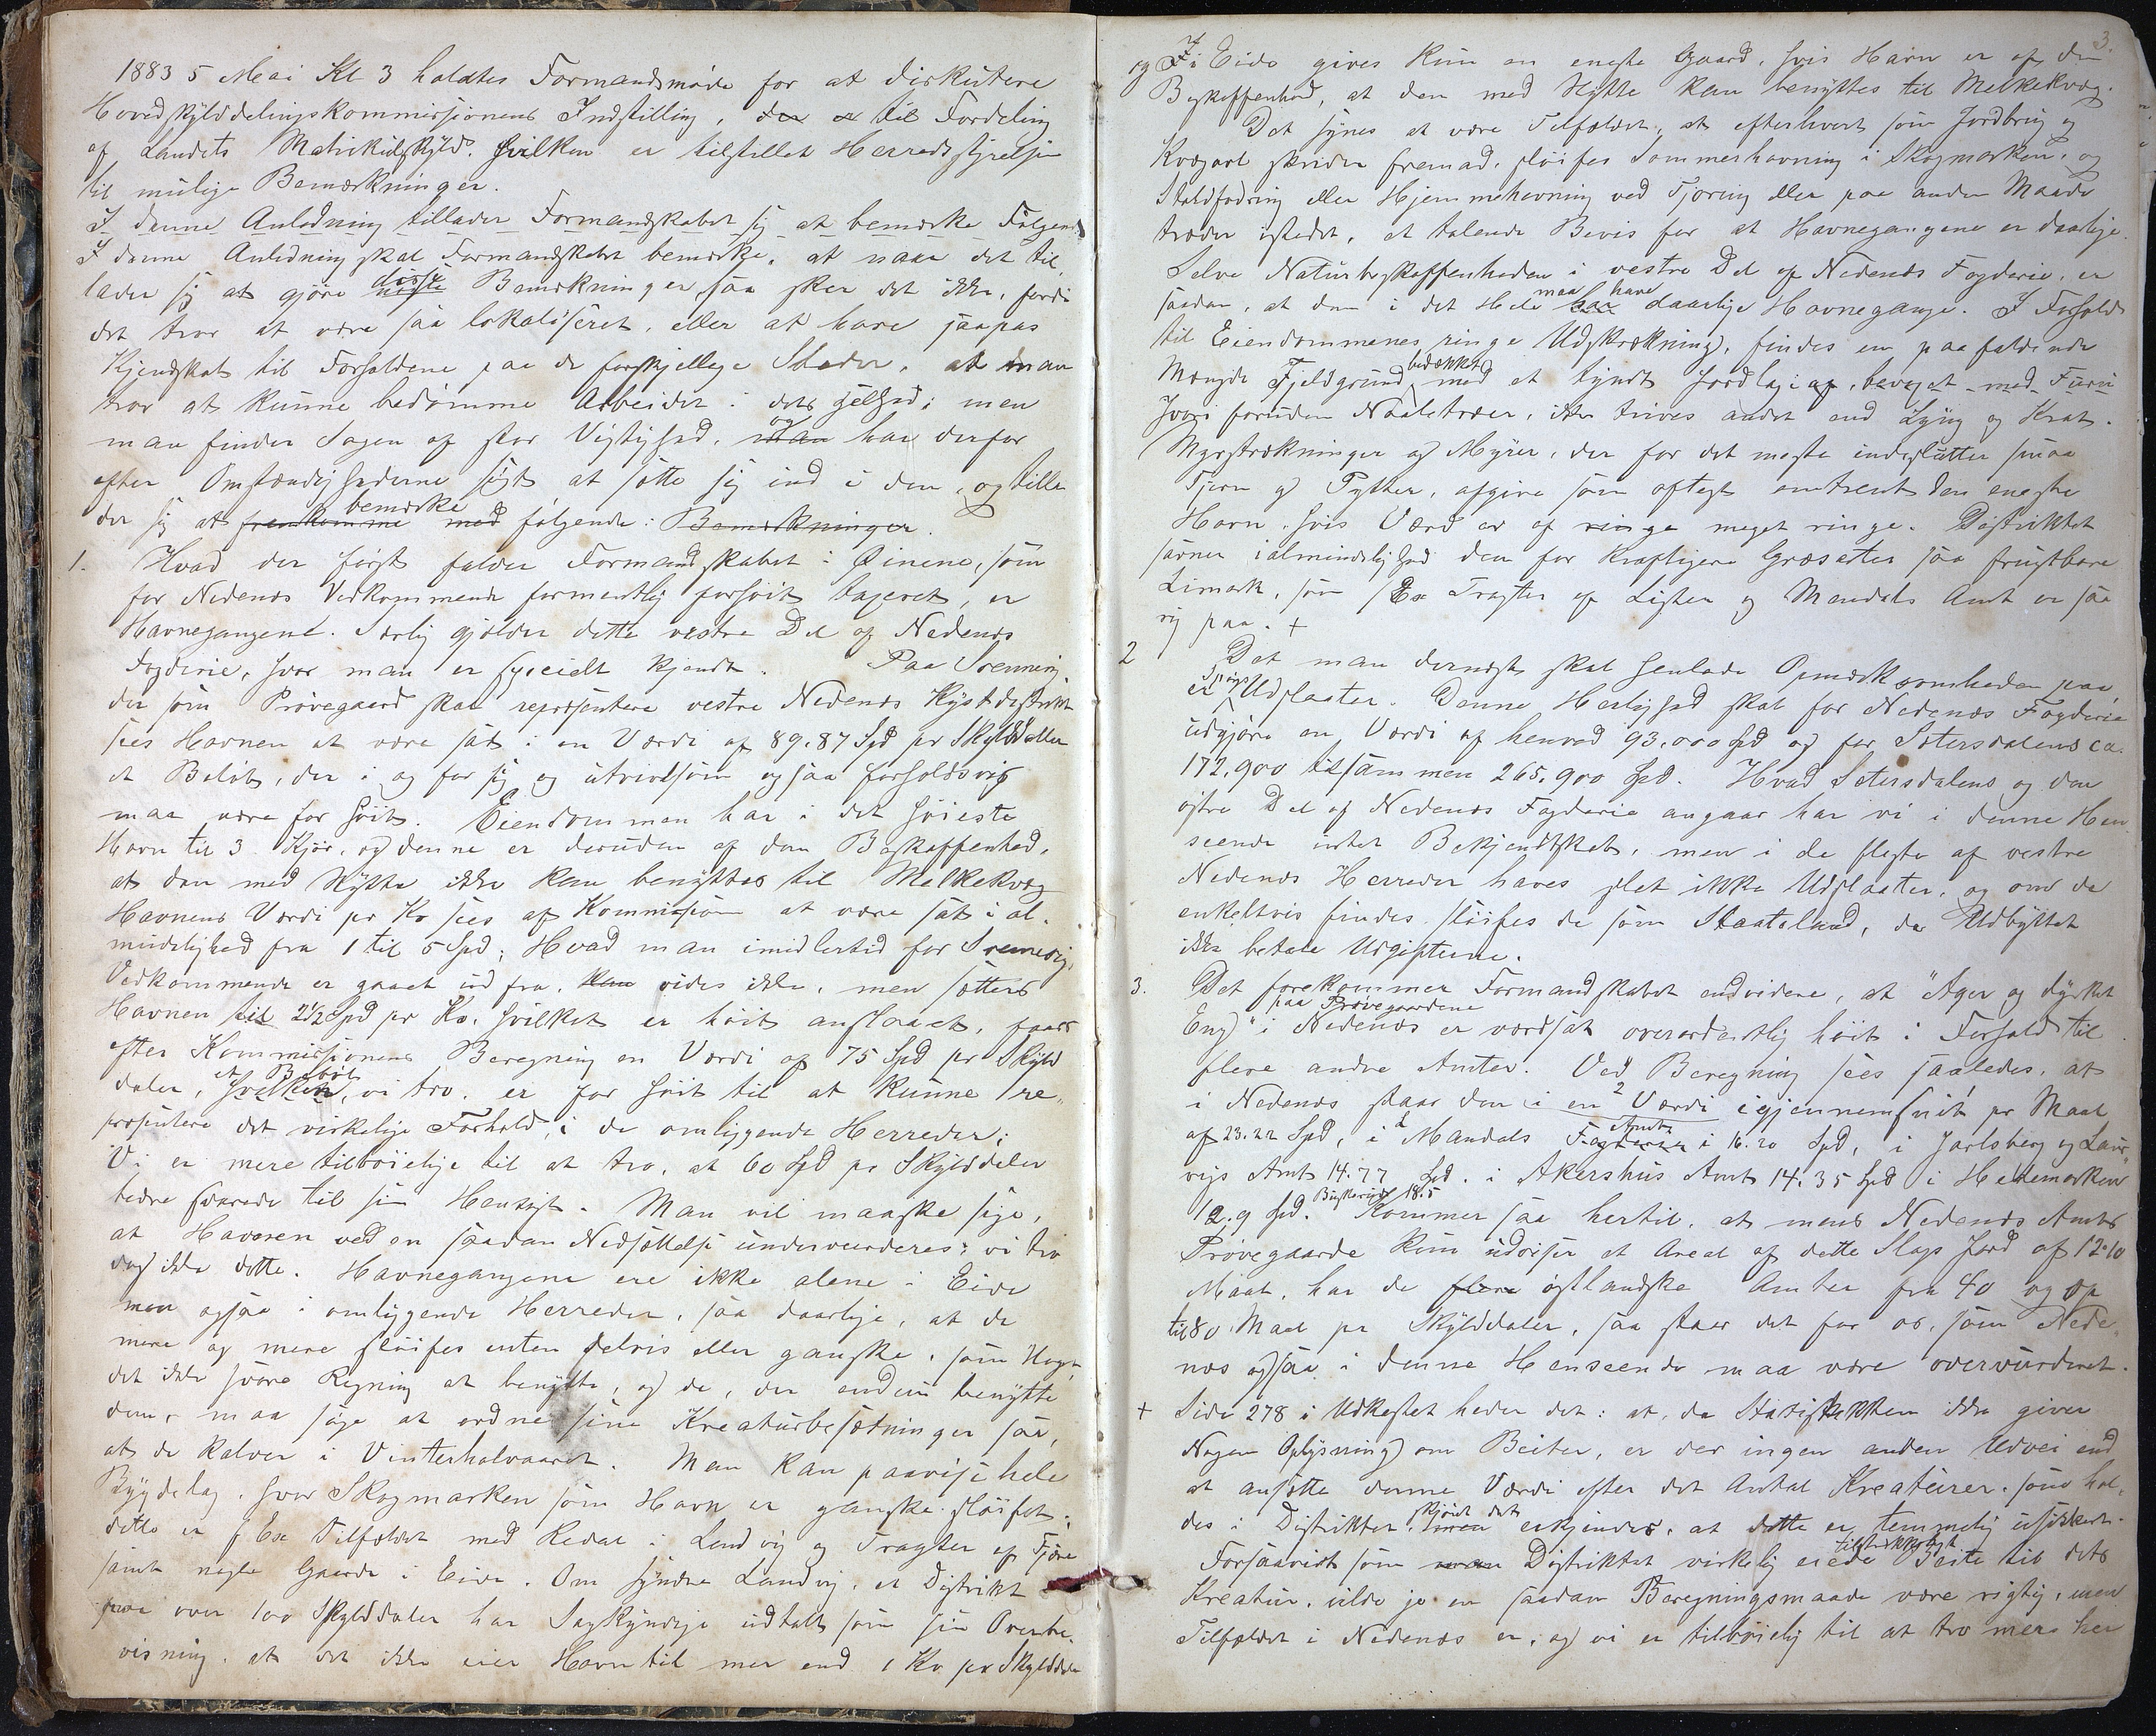 1883 5 Mai Kl 3 holdtes Formandsmøde for at diskutere
Hovedskylddelingskommissionens Indstilling, der er til Fordeling
af Landets Matrikulskyld. hvilken er tilstillet Herredsstyrelsen
til mulige Bemærkninger.
I denne Anledning tillader Formandskabet sig at bemærke Følgende
I denne Anledning skal Formandskabet bemærke, at naar det til„
lader sig at gjøre disse Bemærkninger, saa sker det ikke, fordi
det tror at være saa lokaliseret, eller at have saapas
Kjendskab til Forholdene paa de forskjellige Steder, at man
tror at kunne bedømme Arbeidet i dets Helhed; men
man finder Sagen af stor Vigtighed, og har derfor
efter Omstændighederne søgt at sætte sig ind i den, og tilla
der sig at bemærke følgende: Bemærkninger.
1. Hvad der først falder Formandskabet i Øinene, som
for Nedenæs Vedkommende formentlig forhøit taxeret, er
Havnegangene. Særlig gjælder dette vestre Del af Nedenæs
Fogderie, hvor man er specielt kjendt. Paa Svennevig
der som Prøvegaard skal repræsentere vestre Nedenæs Kystdistrikt
sees Havnen at være sat i en Værdi af 89.87 Spd pr Skylddaler
et Beløb, der i og for sig og utvivlsom ogsaa forholdsvis
maa være for høit. Eiendommen har i det høieste
Havn til 3 Kjør, og denne er desuden af den Beskaffenhed,
at den med Nytte ikke kan benyttes til Melkekvæg
Havnens Værdi pr Ko sees af Kommissionen at være sat i al„
mindelighed fra 1 til 5 Spd; Hvad man imidlertid for Svennevigs
Vedkommende er gaaet ud fra, kan vides ikke, men sættes
Havnen til 2½ Spd pr Ko, hvilket er høit anslaaet, faaes
efter Kommissionens Beregning en Værdi af 75 Spd pr Skyld
daler, et Beløb hvilken, vi tro, er for høit til at kunne re„
præsentere det virkelige Forhold i de omliggende Herreder;
Vi er mere tilbøielige til at tro, at 60 Spd pr Skylddaler
bedre svarede til sin Hensigt. Man vil maaske sige,
at Havnen ved en saadan Nedsættelse undervurderes; vi tro
dog ikke dette. Havnegangene ere ikke alene i Eide
men ogsaa i omliggende Herreder, saa daarlige, at de
mere og mere sløifes enten delvis eller ganske, som Noget
det ikke svarer Regning at benytte, og de, der endnu benytte
dem, maa søge at ordne sine Kreaturbesætninger saa,
at de kalver i Vinterhalvaaret. Man kan paavise hele
Bygdelag, hvor Skogmarken som Havn er ganske sløifet;
dette er f Ex Tilfældet med Redal i Landvig og Tragter af Fjære
samt nogle Gaarde i Eide. Om søndre Landvig, et Distrikt
paa over 100 Skylddaler har Sagkyndige udtalt som sin Overbe„
visning, at det ikke eier Havn til mer end 1 Ko pr Skylddaler
3.
og I i Eide gives kun en eneste Gaard, hvis Havn er af den
Beskaffenhed, at den med Nytte kan benyttes til Melkekvæg.
Det synes at være Tilfældet, at efterhvert som Jordbrug og
Kvægavl skrider fremad, sløifes Sommerhavning i Skogmarken, og
Staldfodring eller Hjemmehavning ved Tjoring eller paa anden Maade
træder istedet, et talende Bevis for at Havnegangene er daarlige.
Selve Naturbeskaffenheden i vestre Del af Nedenæs Fogderie, er
saadan, at den i det Hele maa have har daarlige Havnegange. I Forhold
til Eiendommenes ringe Udstrækning, findes en paafaldende
Mængde Fjeldgrund bedækket med et tyndt Jordlag, bevoxet med Furu
hvori foruden Naaletræer, ikke trives andet end Lyng og Krat.
Myrstrækninger og Myrer, der for det meste indeslutter smaa
Tjern og Pytter, afgive som oftest omtrent den eneste
Havn, hvis Værd er af ringe meget ringe. Distriktet
savner ialmindelighed den for kraftigere Græsarter saa frugtbare
Limark, som f Ex Tragter af Lister og Mandals Amt er saa
rig paa. +
2 Det man dernæst skal henlede Opmærksomheden paa,
er Udslaater. Denne Herlighed skal for Nedenæs Fogderie
udgjøre en Værdi af henved 93.000 Spd og for Sætersdalens ca.
172.900 tilsammen 265.900 Spd. Hvad Setersdalens og den
østre Del af Nedenæs Fogderie angaar har vi i denne Hen„
seende intet Bekjendtskab, men i de fleste af vestre
Nedenæs Herreder haves slet ikke Udslaatter, og om de
enkeltvis findes sløifes de som Slaateland, da Udbyttet
ikke betale Udgifterne.
3. Det forekommer Formandskabet endvidere, at "Ager og dyrket
Eng" paa Prøvegaardene i Nedenæs er værdsat overordentlig høit i Forhold til
flere andre Amter. Ved Beregning sees saaledes, at
i Nedenæs staar den i en Værdi igjennemsnit pr Maal
af 23.22 Spd, i Mandals Amt Fogderie i 16.20 Spd, i Jarlsberg og Laur„
vigs Amt 14.77 Spd. i Akershus Amt 14.35 Spd i Hedemarken
12.9 Spd. Buskerud 18.5 Kommer saa hertil, at mens Nedenæs Amts
Prøvegaarde kun udviser et Areal af dette Slags Jord af 12.10
Maal, har de flere østlandske Amter fra 40 og op
til 80 Maal pr Skylddaler, saa staar det for os, som Nede„
næs ogsaa i denne Henseende maa være overvurderet.
+ Side 278 i Udkastet heder det: at, da Statistikken ikke giver
Nogen Oplysning om Beiter, er der ingen anden Udvei end
at ansætte denne Værdi efter det Antal Kreaturer, som hol„
des i Distriktet, skjønt det men erkjendes, at dette er temmelig usikkert.
Forsaavidt som man Distriktet virkelig eiede tilstrækkeligt Beite til dets
Kreatur, vilde jo en saadan Beregningsmaade være rigtig, men
Tilfældet i Nedenæs er, og vi er tilbøielig til at tro mere her